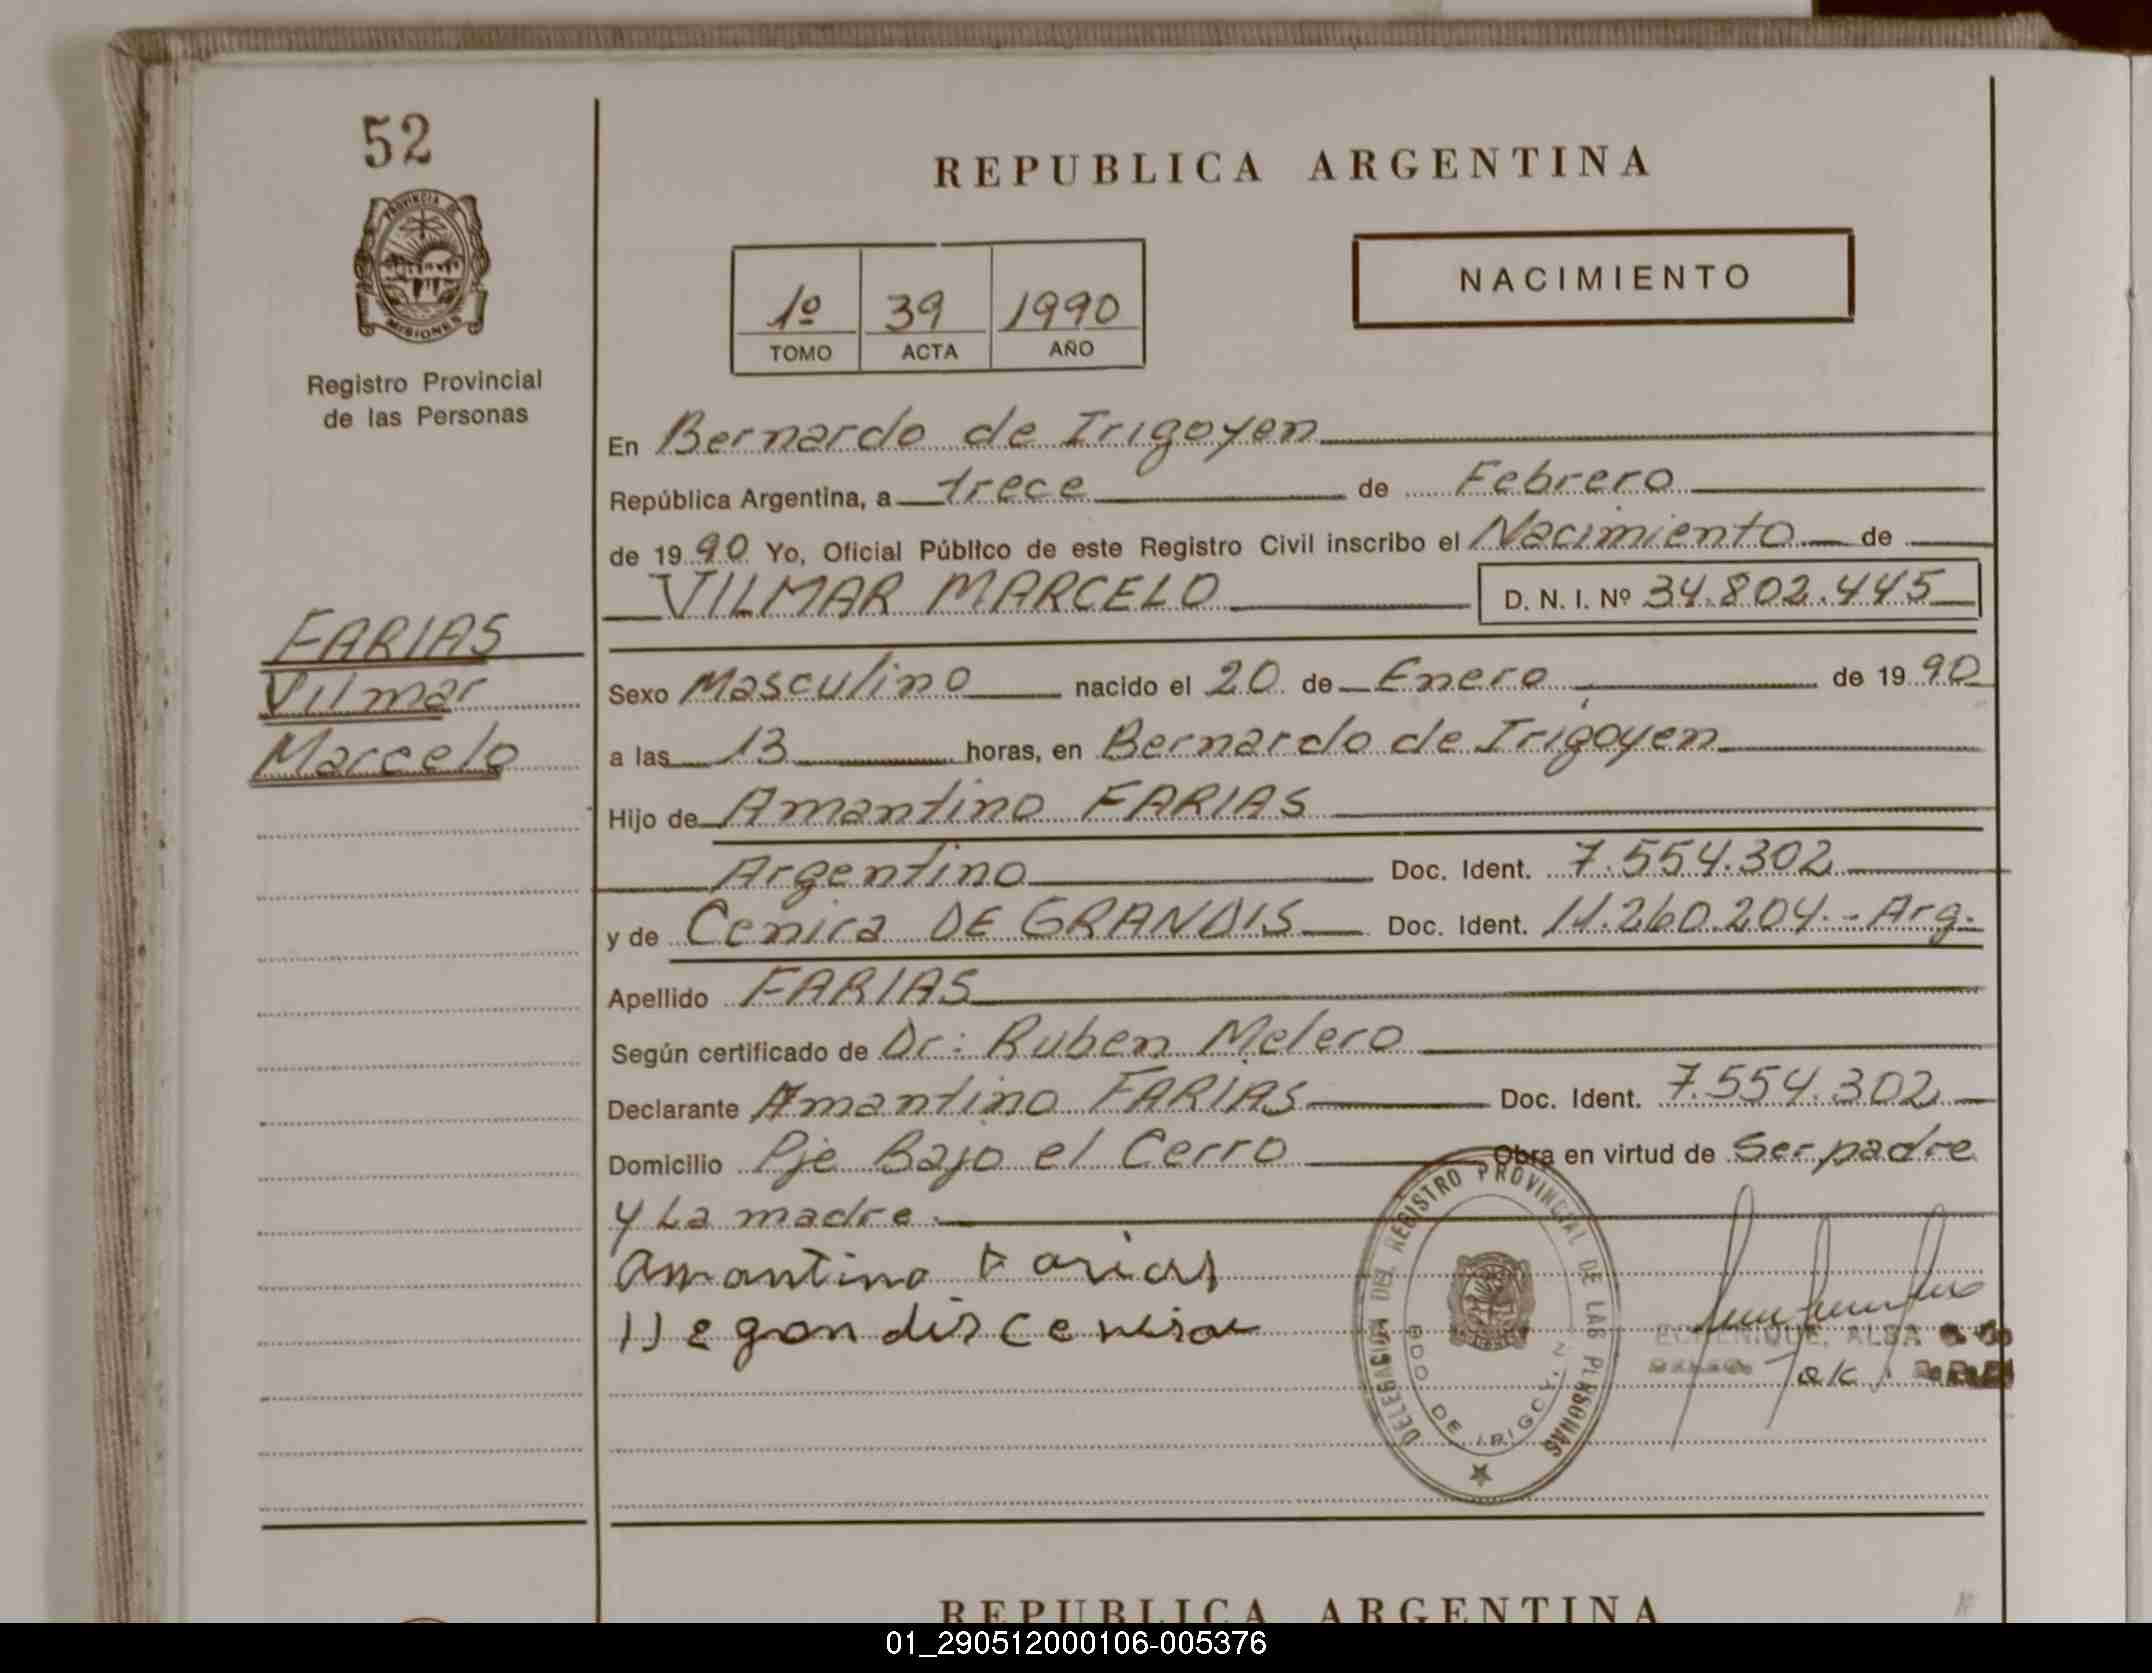 52
PROVINCIA DE
MISIONES
Registro Provincial
de las Personas
FARIAS
Vilmar
Marcelo
REPUBLICA ARGENTINA
1º 39 1990
TOMO ACTA AÑO
NACIMIENTO
En Bernardo de Irigoyen
República Argentina, a trece de Febrero
de 1990 Yo, Oficial Público de este Registro Civil inscribo el Nacimiento de
VILMAR MARCELO D. N. I. Nº 34.802.445
Sexo Masculino nacido el 20 de Enero de 1990
a las 13 horas, en Bernardo de Irigoyen
Hijo de Amantino FARIAS
Argentino Doc. Ident. 7.554.302
y de Cenira DE GRANDIS Doc. Ident. 11.260.204.- Arg.
Apellido FARIAS
Según certificado de Dr: Ruben Melero
Declarante Amantino FARIAS Doc. Ident. 7.554.302
Domicilio Pje Bajo el Cerro Obra en virtud de Ser padre
y La madre.
Amantino Farias
DELEGACION DEL REGISTRO PROVINCIAL DE LAS PERSONAS
BDO DE IRIGOYEN
ALBA
REPUBLICA ARGENTINA
01_290512000106-005376